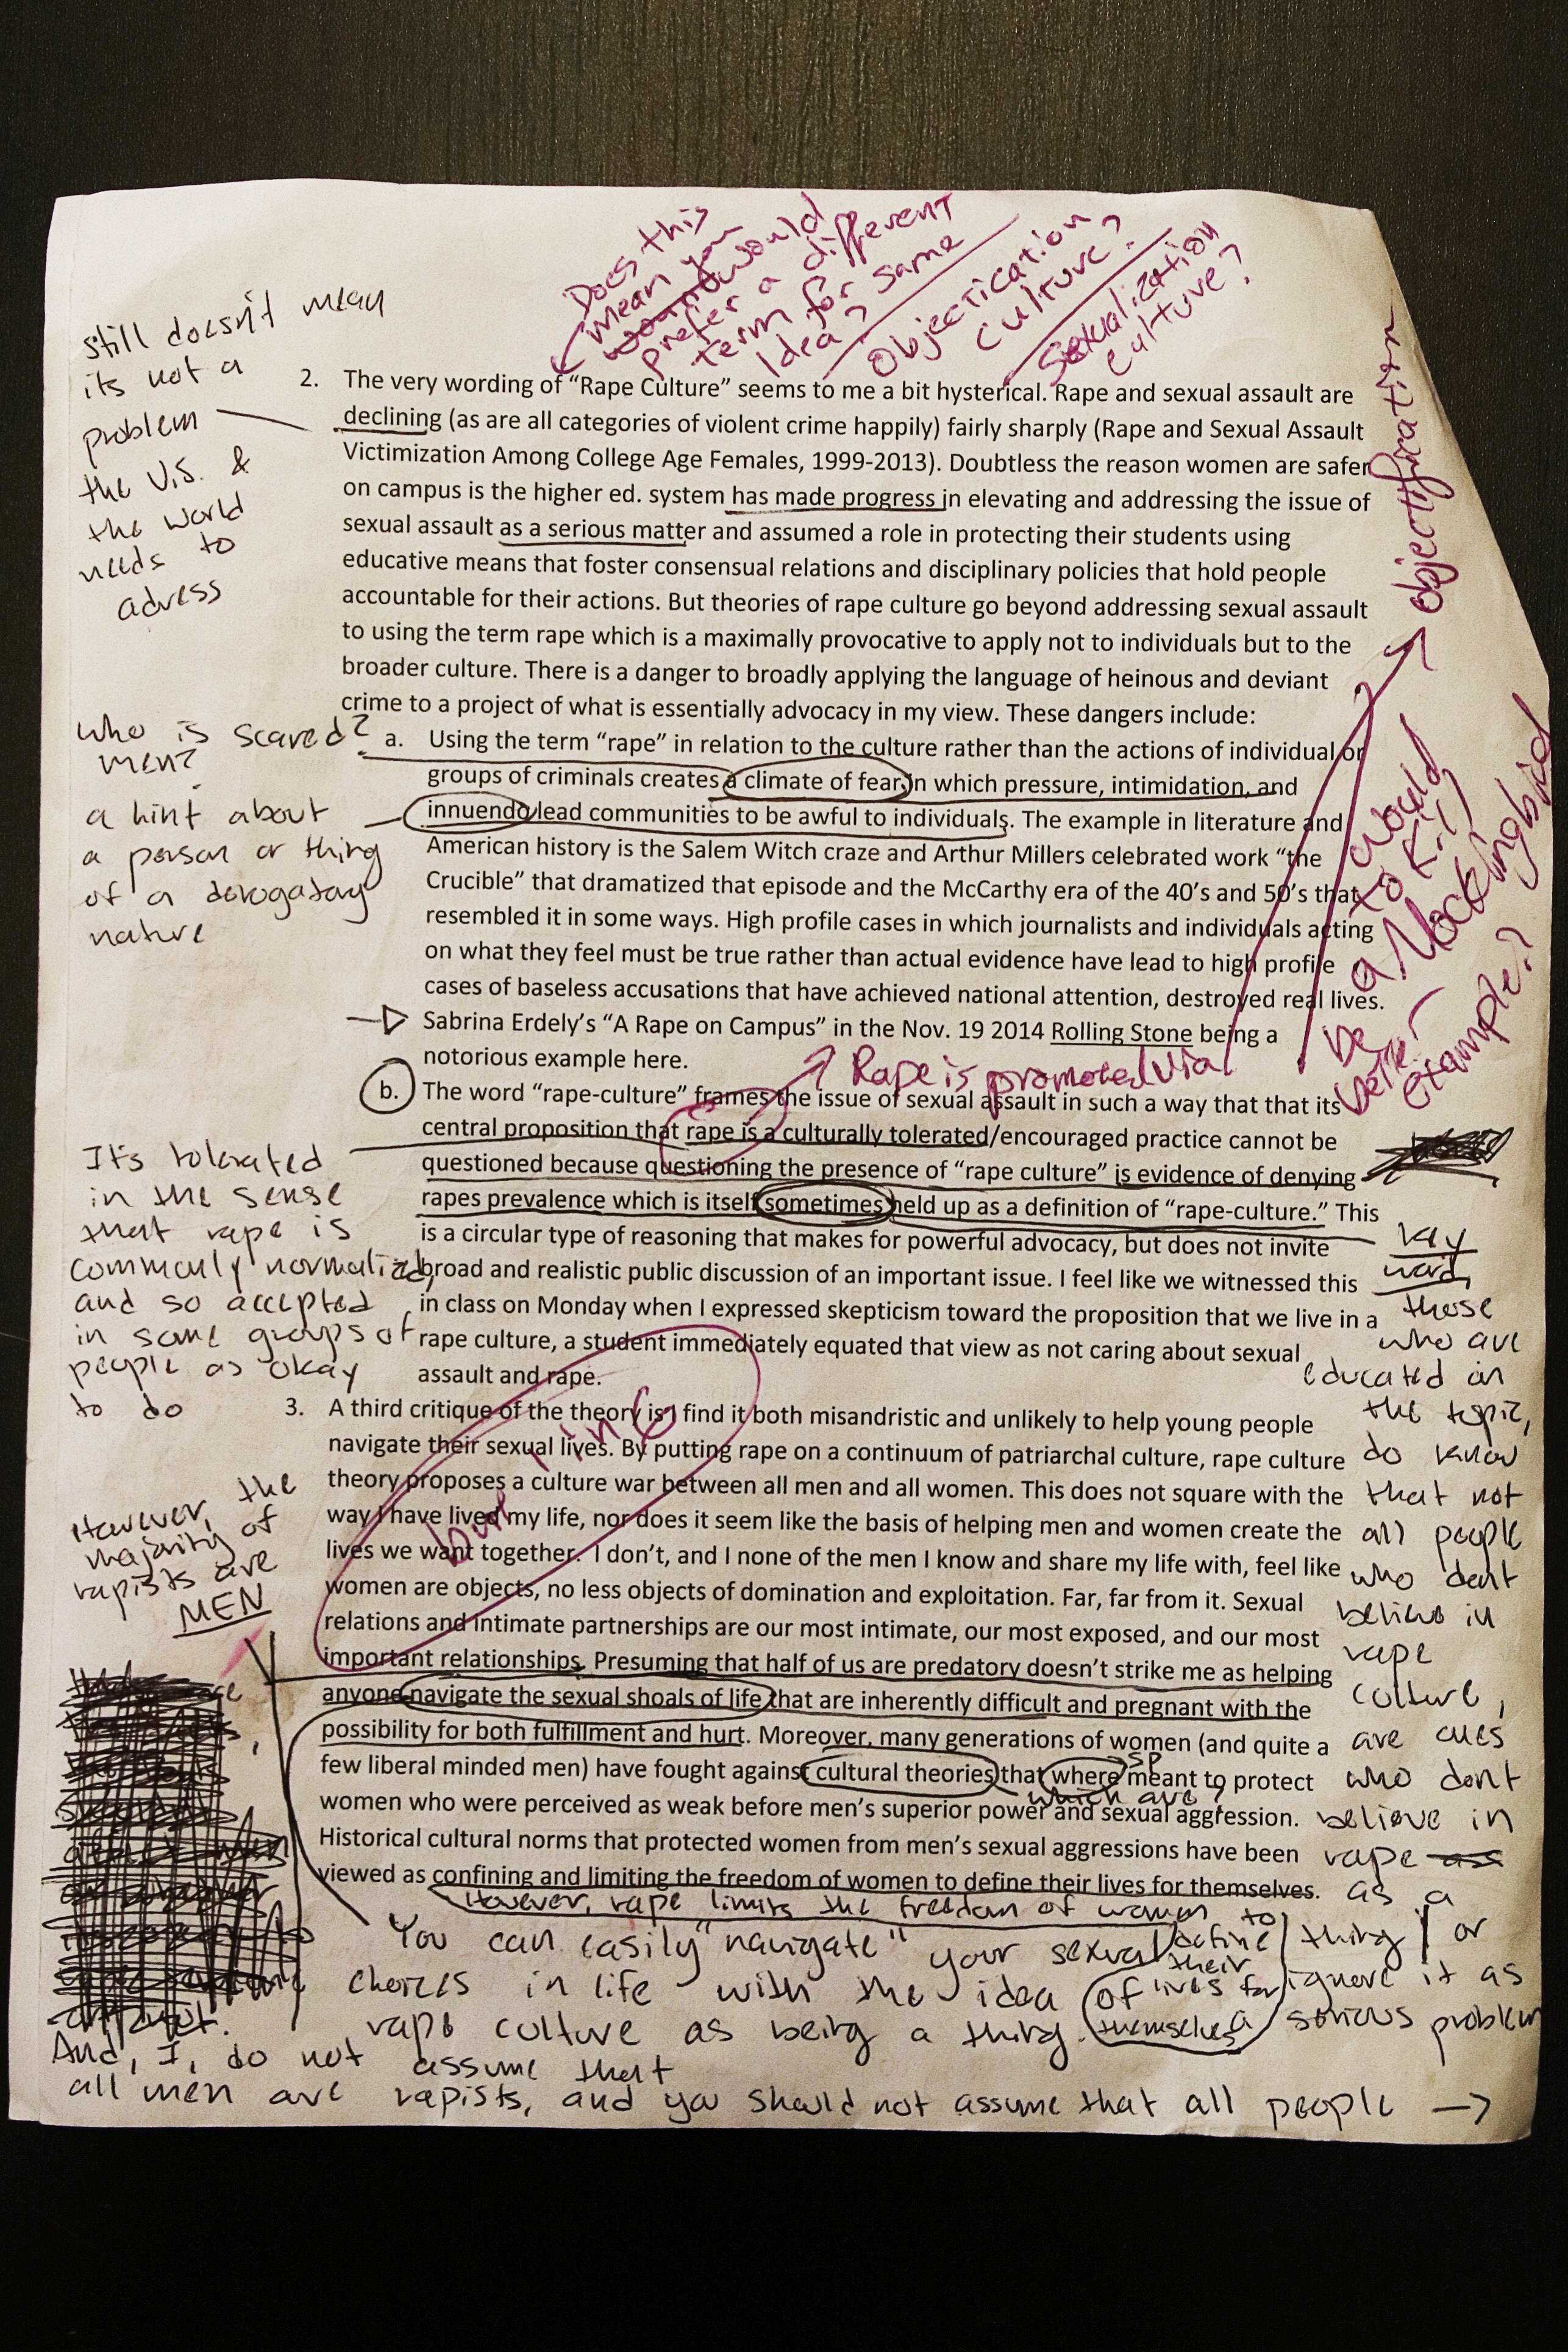 Does this
mean you
would
prefer a different
term for same
Idea?
Objectication
culture?
Sexualization
culture?
still doesn't mean
its not a
problem
the U.S. &
the world
needs to
adress
2. The very wording of “Rape Culture” seems to me a bit hysterical. Rape and sexual assault are
declining (as are all categories of violent crime happily) fairly sharply (Rape and Sexual Assault
Victimization Among College Age Females, 1999-2013). Doubtless the reason women are safer
on campus is the higher ed. system has made progress in elevating and addressing the issue of
sexual assault as a serious matter and assumed a role in protecting their students using
educative means that foster consensual relations and disciplinary policies that hold people
accountable for their actions. But theories of rape culture go beyond addressing sexual assault
to using the term rape which is a maximally provocative to apply not to individuals but to the
broader culture. There is a danger to broadly applying the language of heinous and deviant
crime to a project of what is essentially advocacy in my view. These dangers include:
objectification
who is scared?
men?
a hint about
a person or thing
of a derogatory
nature
a. Using the term “rape” in relation to the culture rather than the actions of individual or
groups of criminals creates a climate of fear in which pressure, intimidation, and
innuendo lead communities to be awful to individuals. The example in literature and
American history is the Salem Witch craze and Arthur Millers celebrated work “the
Crucible” that dramatized that episode and the McCarthy era of the 40’s and 50’s that
resembled it in some ways. High profile cases in which journalists and individuals acting
on what they feel must be true rather than actual evidence have lead to high profile
cases of baseless accusations that have achieved national attention, destroyed real lives.
Sabrina Erdely’s “A Rape on Campus” in the Nov. 19 2014 Rolling Stone being a
notorious example here.
would
to Kill
a Mockingbird
be
better
example?
Rape is promoted via
b. The word “rape-culture” frames the issue of sexual assault in such a way that that its
central proposition that rape is a culturally tolerated/encouraged practice cannot be
questioned because questioning the presence of “rape culture” is evidence of denying
rapes prevalence which is itself sometimes held up as a definition of “rape-culture.” This
is a circular type of reasoning that makes for powerful advocacy, but does not invite
broad and realistic public discussion of an important issue. I feel like we witnessed this
in class on Monday when I expressed skepticism toward the proposition that we live in a
rape culture, a student immediately equated that view as not caring about sexual
assault and rape.
It's tolerated
in the sense
that rape is
commonly normalized,
and so accepted
in some groups of
people as okay
to do
key
word,
those
who are
educated on
the topic,
do know
that not
all people
who dont
believe in
rape
culture,
are ones
who dont
believe in
rape
as a
thing or
ignore it as
a serious problem
3. A third critique of the theory is I find it both misandristic and unlikely to help young people
navigate their sexual lives. By putting rape on a continuum of patriarchal culture, rape culture
theory proposes a culture war between all men and all women. This does not square with the
way I have lived my life, nor does it seem like the basis of helping men and women create the
lives we want together. I don’t, and I none of the men I know and share my life with, feel like
women are objects, no less objects of domination and exploitation. Far, far from it. Sexual
relations and intimate partnerships are our most intimate, our most exposed, and our most
important relationships. Presuming that half of us are predatory doesn’t strike me as helping
anyone navigate the sexual shoals of life that are inherently difficult and pregnant with the
possibility for both fulfillment and hurt. Moreover, many generations of women (and quite a
few liberal minded men) have fought against cultural theories that where meant to protect
women who were perceived as weak before men’s superior power and sexual aggression.
Historical cultural norms that protected women from men’s sexual aggressions have been
viewed as confining and limiting the freedom of women to define their lives for themselves.
However, the
majority of
rapists are
MEN
sp
which are?
However, rape limits the freedom of women to
define
their
lives for
themselves
You can easily "navigate" your sexual
choices in life with the idea of
rape culture as being a thing.
And, I, do not assume that
all men are rapists, and you should not assume that all people